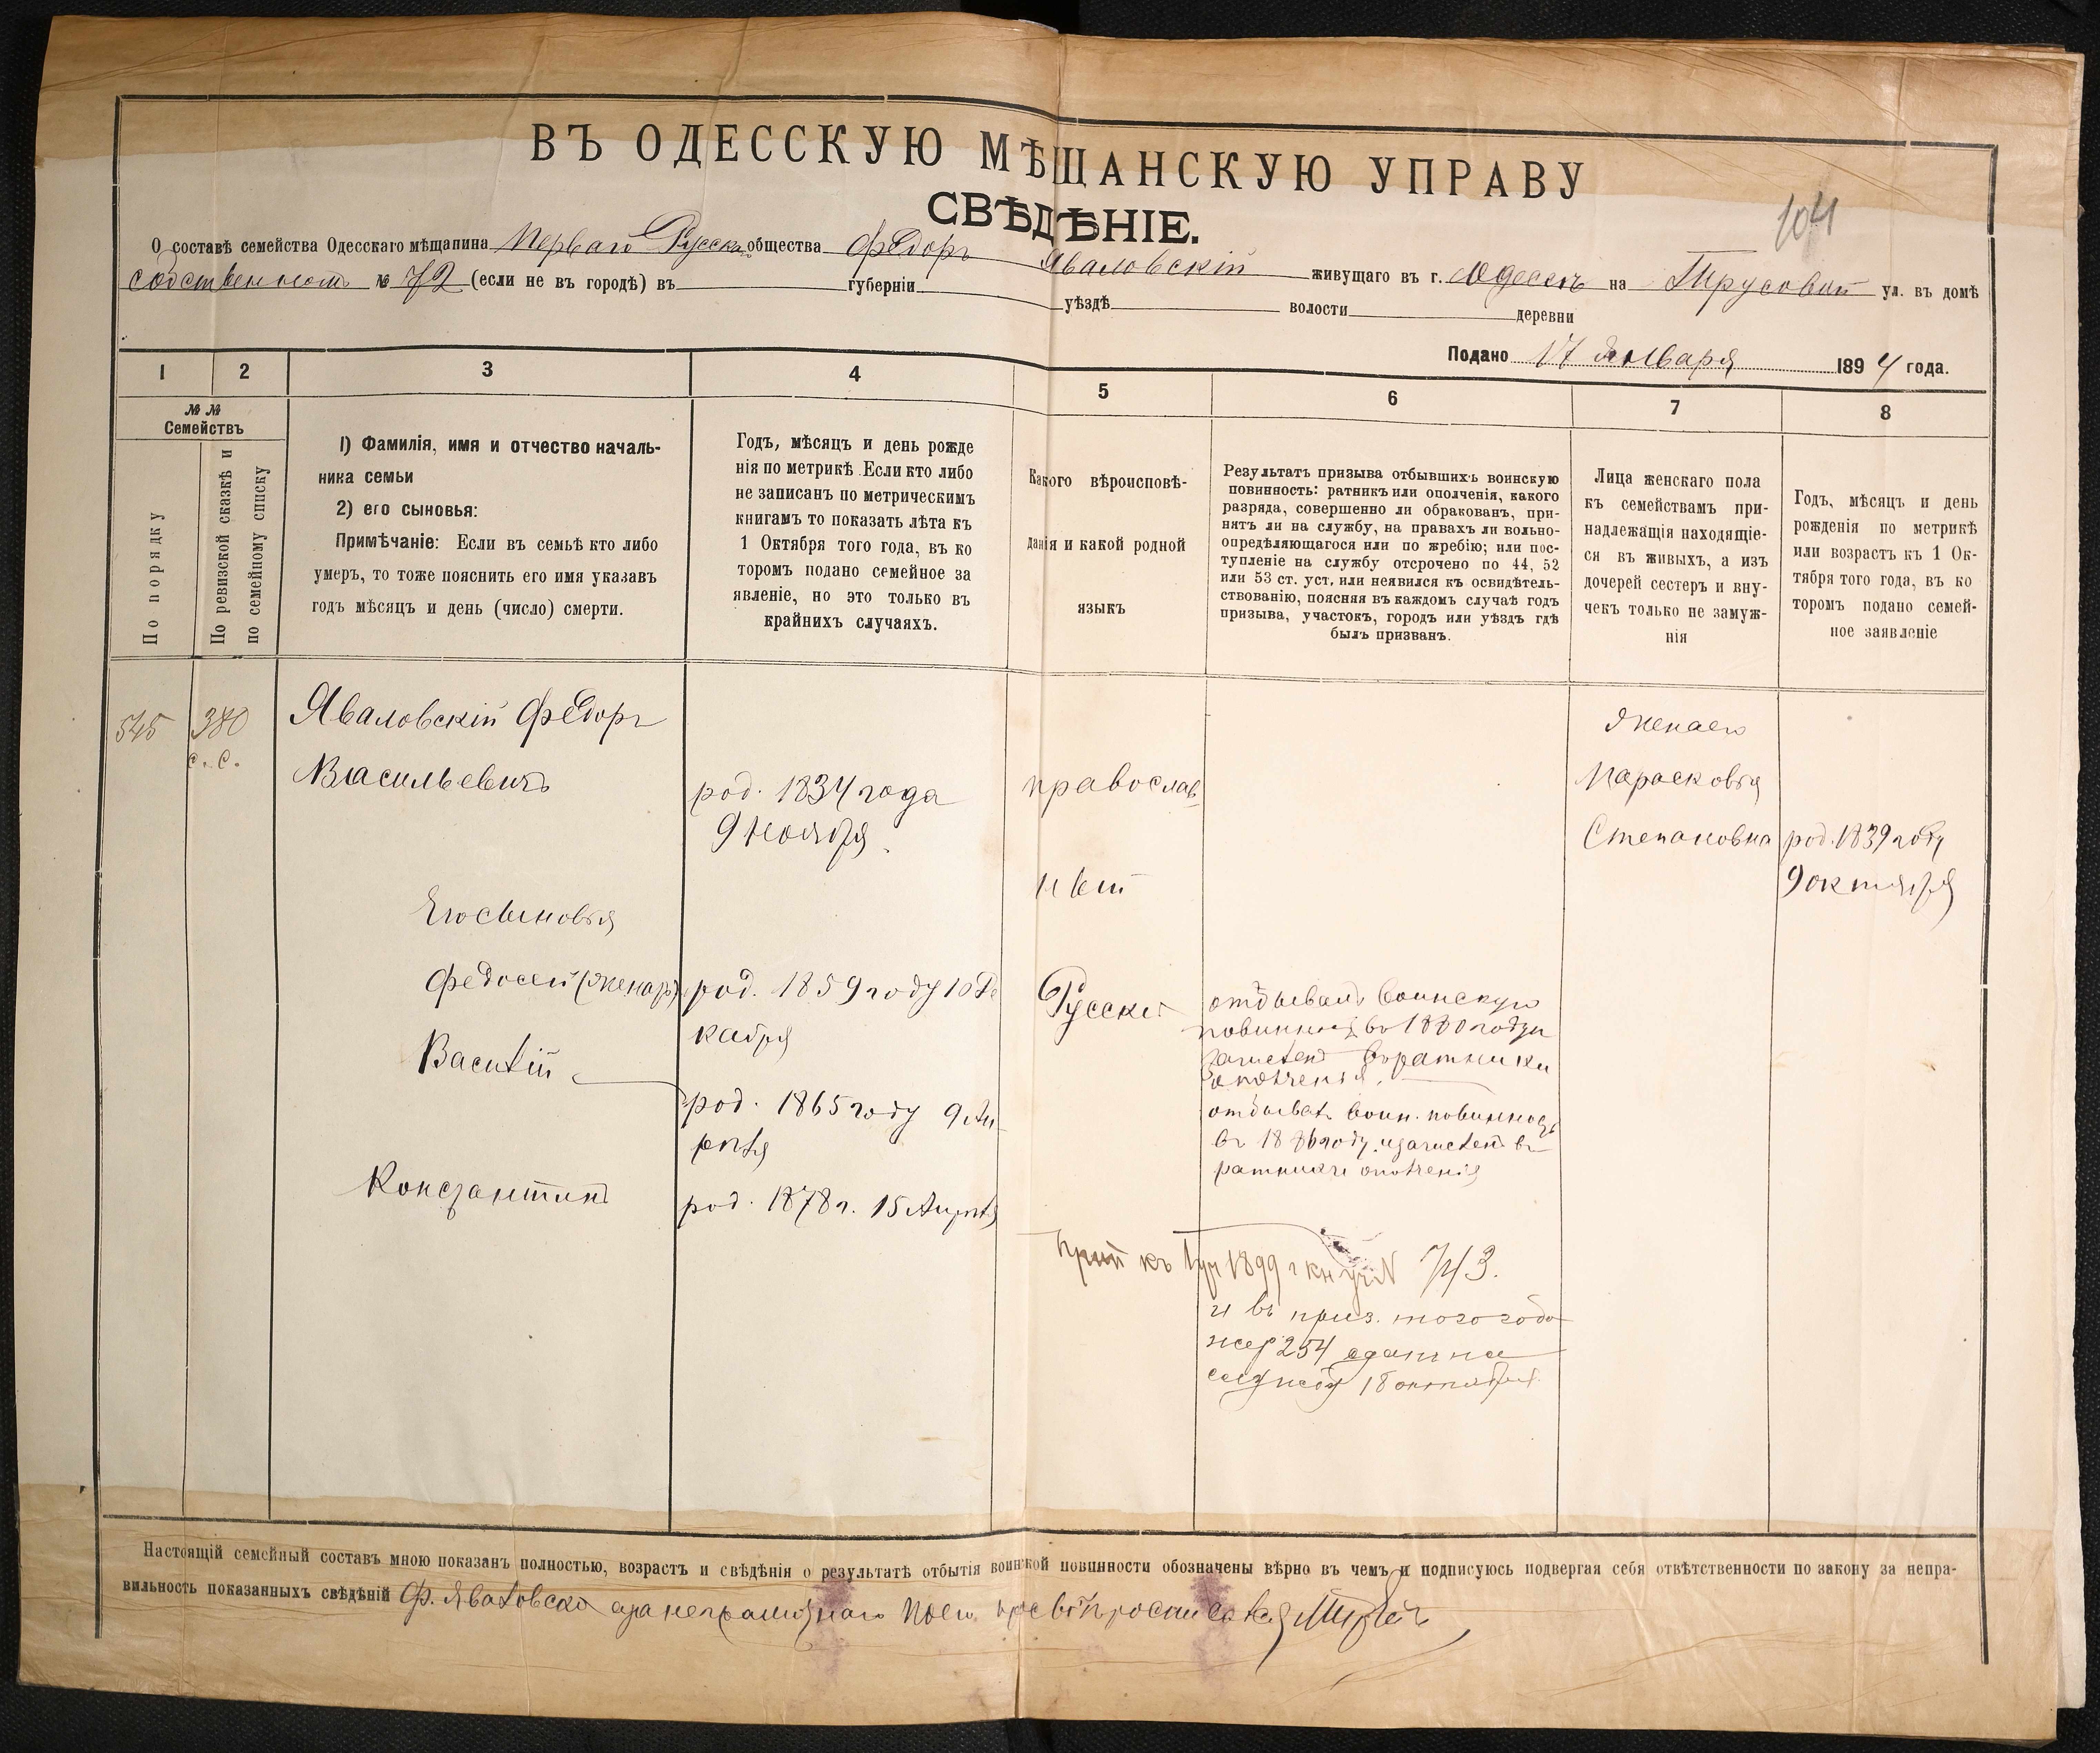 104
ВЪ ОДЕССКУЮ МѢЩАНСКУЮ УПРАВУ
СВѢДѢНІЕ.
О составѣ семейства Одесскаго мѣщанина Перваго Русска общества Федоръ Яваловскій живущаго въ г. Одессѣ на Трусовой ул. въ домѣ
собственномъ № 72 (если не въ городѣ) въ губерніи уѣздѣ волости деревни
Подано 17 Января 1894 года.
1 2 3 4 5 6 7 8
№ № Семействъ
По порядку
По ревизской сказкѣ и
по семейному списку
1) Фамилія, имя и отчество началь-
ника семьи
2) его сыновья:
Примѣчаніе: Если въ семьѣ кто либо
умеръ, то тоже пояснить его имя указавъ
годъ мѣсяцъ и день (число) смерти.
Годъ, мѣсяцъ и день рожде
нія по метрикѣ Если кто либо
не записанъ по метрическимъ
книгамъ то показать лѣта къ
1 Октября того года, въ ко
торомъ подано семейное за
явленіе, но это только въ
крайнихъ случаяхъ.
Какого вѣроисповѣ-
данія и какой родной
языкъ
Результатъ призыва отбывшихъ воинскую
повинность: ратникъ или ополченія, какого
разряда, совершенно ли обракованъ, при-
нятъ ли на службу, на правахъ ли вольно-
опредѣляющагося или по жребію; или пос-
тупленіе на службу отсрочено по 44, 52
или 53 ст. уст, или неявился къ освидѣтель-
ствованію, поясняя въ каждомъ случаѣ годъ
призыва, участокъ, городъ или уѣздъ гдѣ
былъ призванъ.
Лица женскаго пола
къ семействамъ при-
надлежащія находящіе-
ся въ живыхъ, а изъ
дочерей сестеръ и вну-
чекъ только не замуж-
нія
Годъ, мѣсяцъ и день
рожденія по метрикѣ
или возрастъ къ 1 Ок-
тября того года, въ ко
торомъ подано семей-
ное заявленіе
545
380
с. с.
Яваловскій Федоръ
Васильевичъ
род. 1834 года
9 ноября
православ
ный
Жена его
Парасковья
Степановна
род. 1839 году
9 октября
Его сыновья
Федосей (женат)
род. 1859 году 10 Де
кабря
Русски
отбывалъ воинскую
повинност въ 1880 году и
зачисленъ въ ратники
ополченья.
Василій
род. 1865 году 9 Ап
реля
отбывалъ воин. повинность
въ 1886 году. и зачисленъ въ
ратники ополченія
Константинъ
род. 1878 г. 15 Апреля
къ 1899 г 743.
и въ приз. того года
жер 254 сданъ на
службу 18 октября
Настоящій семейный составъ мною показанъ полностью, возрастъ и свѣдѣнія о результатѣ отбытія воинской повинности обозначены вѣрно въ чемъ и подписуюсь подвергая себя отвѣтственности по закону за непра-
вильность показанныхъ свѣдѣній Ф. Яваловско за неграмотнаго по его прозбѣ росписался